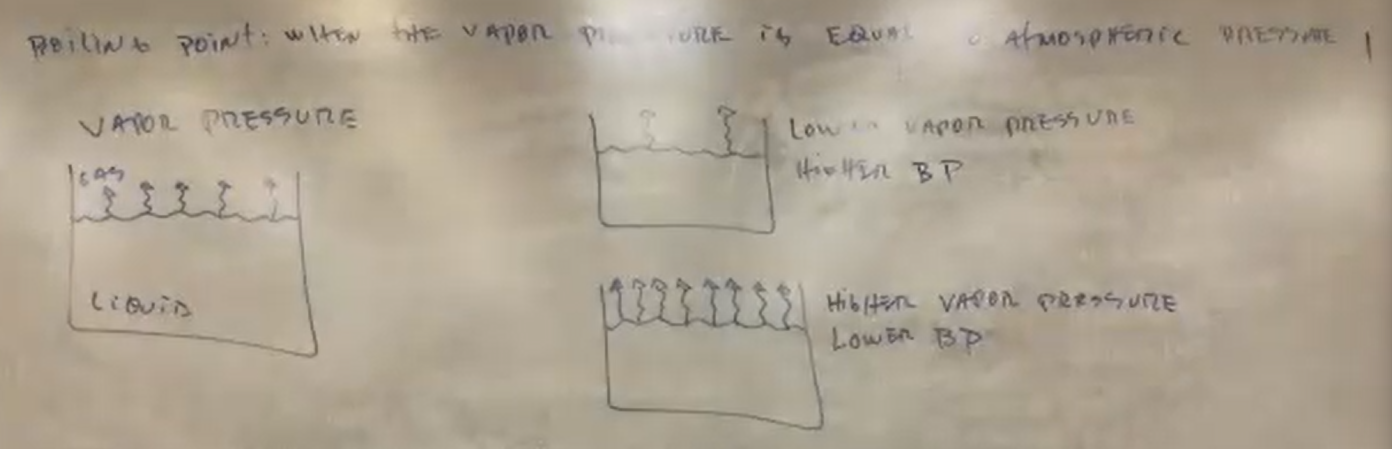 BOILING POINT: WHEN THE VAPOR PRESSURE IS EQUAL TO ATMOSPHERIC PRESSURE
VAPOR PRESSURE
GAS
LIQUID
LOWER VAPOR PRESSURE
HIGHER BP
HIGHER VAPOR PRESSURE
LOWER BP